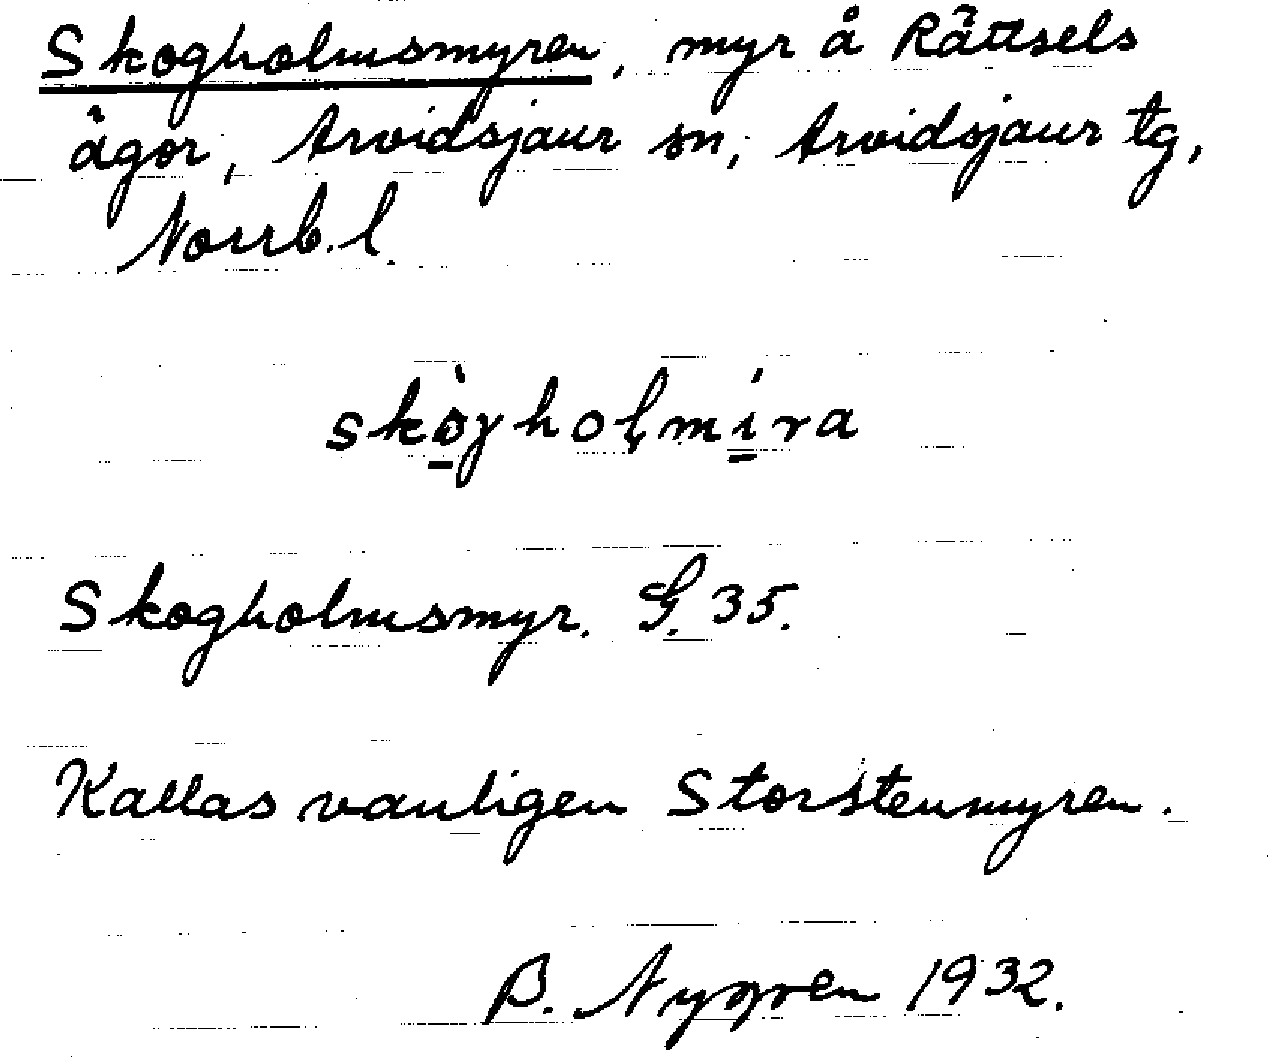 Skogholmsmyren, myr å Rättsels
ägor, Arvidsjaur sn, Arvidsjaur tg,
Norrb. l.
skò̱gholmí̱ra
Skogholmsmyr. G. 35.
Kallas vanligen Storstenmyren.
B. Nygren 1932.